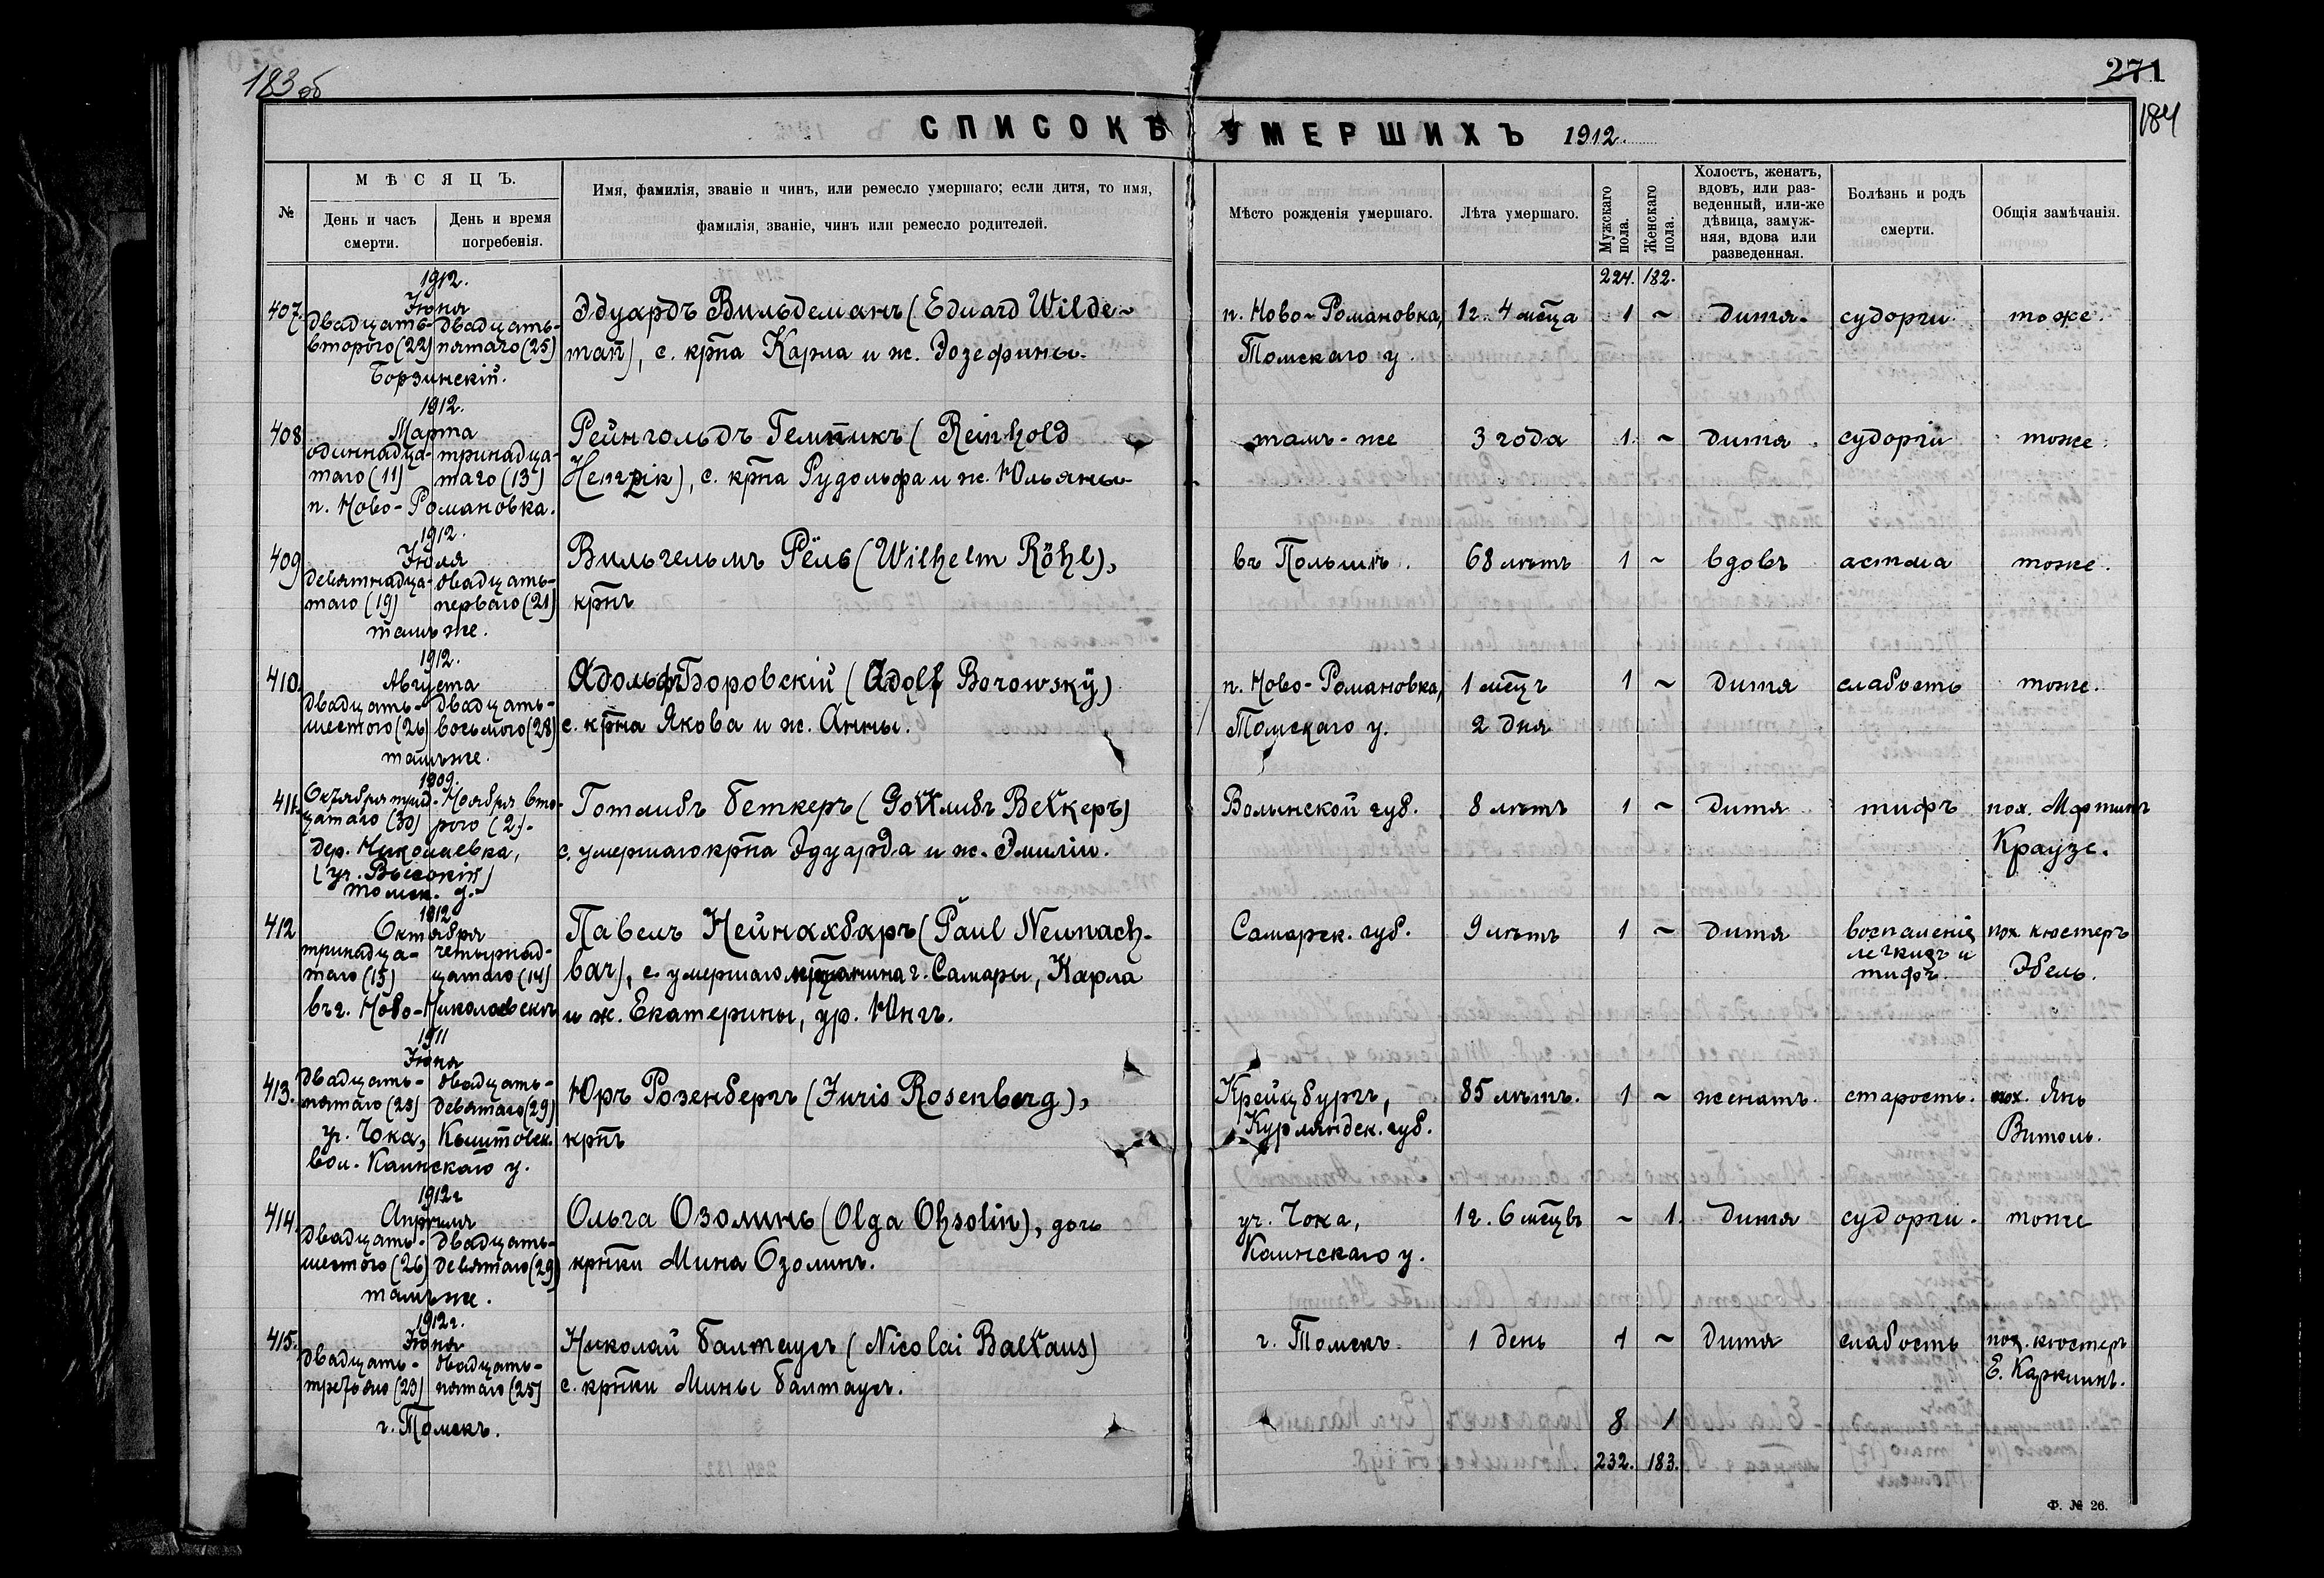 183 об
271
184
СПИСОКЪ УМЕРШИХЪ 1912.
№
МѢСЯЦЪ.
День и часъ смерти.
День и время погребенія.
Имя, фамилія, званіе и чинъ, или ремесло умершаго; если дитя, то имя,
фамилія, званіе, чинъ или ремесло родителей.
Мѣсто рожденія умершаго.
Лѣта умершаго.
Мужскаго пола.
Женскаго пола.
Холостъ, женатъ,
вдовъ, или раз-
веденный, или-же
дѣвица, замуж-
няя, вдова или
разведенная.
Болѣзнь и родъ
смерти.
Общія замѣчанія.
224. 182.
407.
1912.
Іюня
двадцать- двадцать-
второго (22) пятаго (25)
Борзинскій.
Эдуардъ Вильдеманъ (Eduard Wilde-
man̄), с. крпа Карла и ж. Эозефины.
п. Ново-Романовка, 1 г. 4 мѣца 1 ~ дитя. судорги. тоже.
Томскаго у.
408
1912.
Марта
одиннадца- тринадца-
таго (11) таго (13)
п. Ново-Романовка.
Рейнгольдъ Гемпикъ (Reinhold
), с. крпа Рудольфа и ж. Юльяны.
тамъ-же 3 года 1. ~ дитя. судорги тоже.
409
1912.
Іюля
девятнадца- двадцать-
таго (19) перваго (21)
тамъ же.
Вильгельмъ Рёль (Wilhelm Röhl),
крпъ
въ Польшѣ. 68 лѣтъ 1 ~ вдовъ астма тоже.
410.
1912.
Августа
двадцать- двадцать-
шестого (26) восьмого (28)
тамъ же.
Адольфъ Боровскій (Adolf Borowsky)
с. крпа Якова и ж. Анны.
п. Ново-Романовка, 1 мѣцъ 1 ~ дитя слабость тоже.
Томскаго у. 2 дня
411.
1909.
Октября трид- Ноября вто-
цатаго (30) рого (2).
дер. Николаевка,
(уч. Высокій)
томск. у.
Готлибъ Беткеръ (Gottлибъ Веtкеръ)
с. умершаго крпа Эдуарда и ж. Эмиліи.
Волынской губ. 8 лѣтъ 1 ~ дитя тифъ пох. Мартинъ
Краузе.
412
1912
Октября
тринадца- четырнад-
таго (13) цатаго (14)
въ г. Ново-Николаевскѣ
Павелъ Нейнахбаръ (Paul Neunach-
bar), с. умершаго мѣщанина г. Самары, Карла
и ж. Екатерины, ур. Юнгъ.
Самарск. губ. 9 лѣтъ 1 ~ дитя воспаленіе пох. кюстеръ
легкихъ и
тифъ. Эбель.
413.
1911
Іюня
двадцать- двадцать-
пятаго (25) девятаго (29)
уч. Чока, Кыштовск.
вол. Каинскаго у.
Юръ Розенбергъ (Juris Rosenberg),
крпъ
Крейцбургъ, 85 лѣтъ. 1 ~ женатъ. старость. пох. Янъ
Курляндск. губ. Витоль.
414.
1912 г
Апрѣля
двадцать- двадцать-
шестого (26) девятаго (29)
тамъ же.
Ольга Озолинъ (Olga Ohsolin), дочь
крпки Мина Озолинъ.
уч. Чока, 1 г. 6 мѣцвъ ~ 1. дитя судорги. тоже
Каинскаго у.
415.
1912 г.
Іюня
двадцать- двадцать-
третьяго (23) пятаго (25)
г. Томскъ.
Николай Балтаусъ (Nicolai Baltaus)
с. крпки Мины Балтаусъ.
г. Томскъ. 1 день 1 ~ дитя слабость пох. кюстеръ
Е. Карклинъ.
8 1
232. 183.
Ф. № 26.